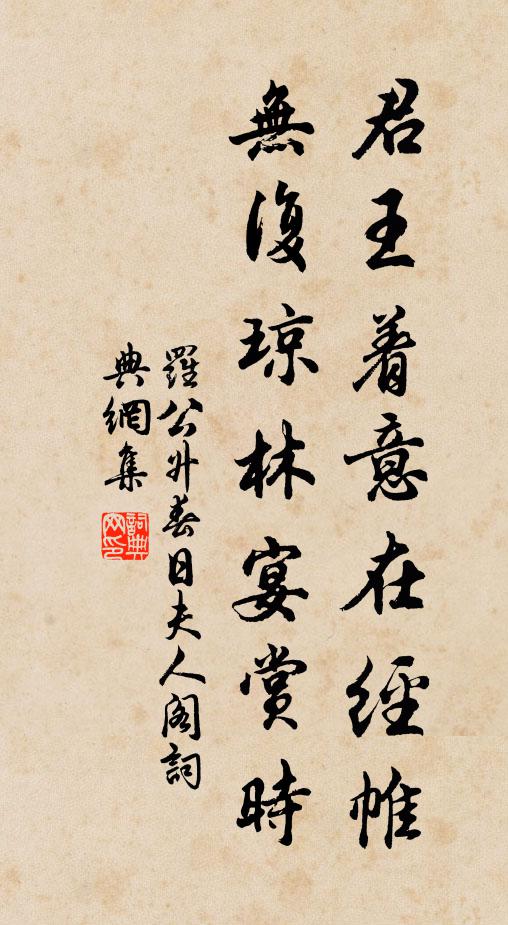 君王着意在經帷
無復琼林宴賞時
羅公升春日夫人阁詞
典網集
詞典网印